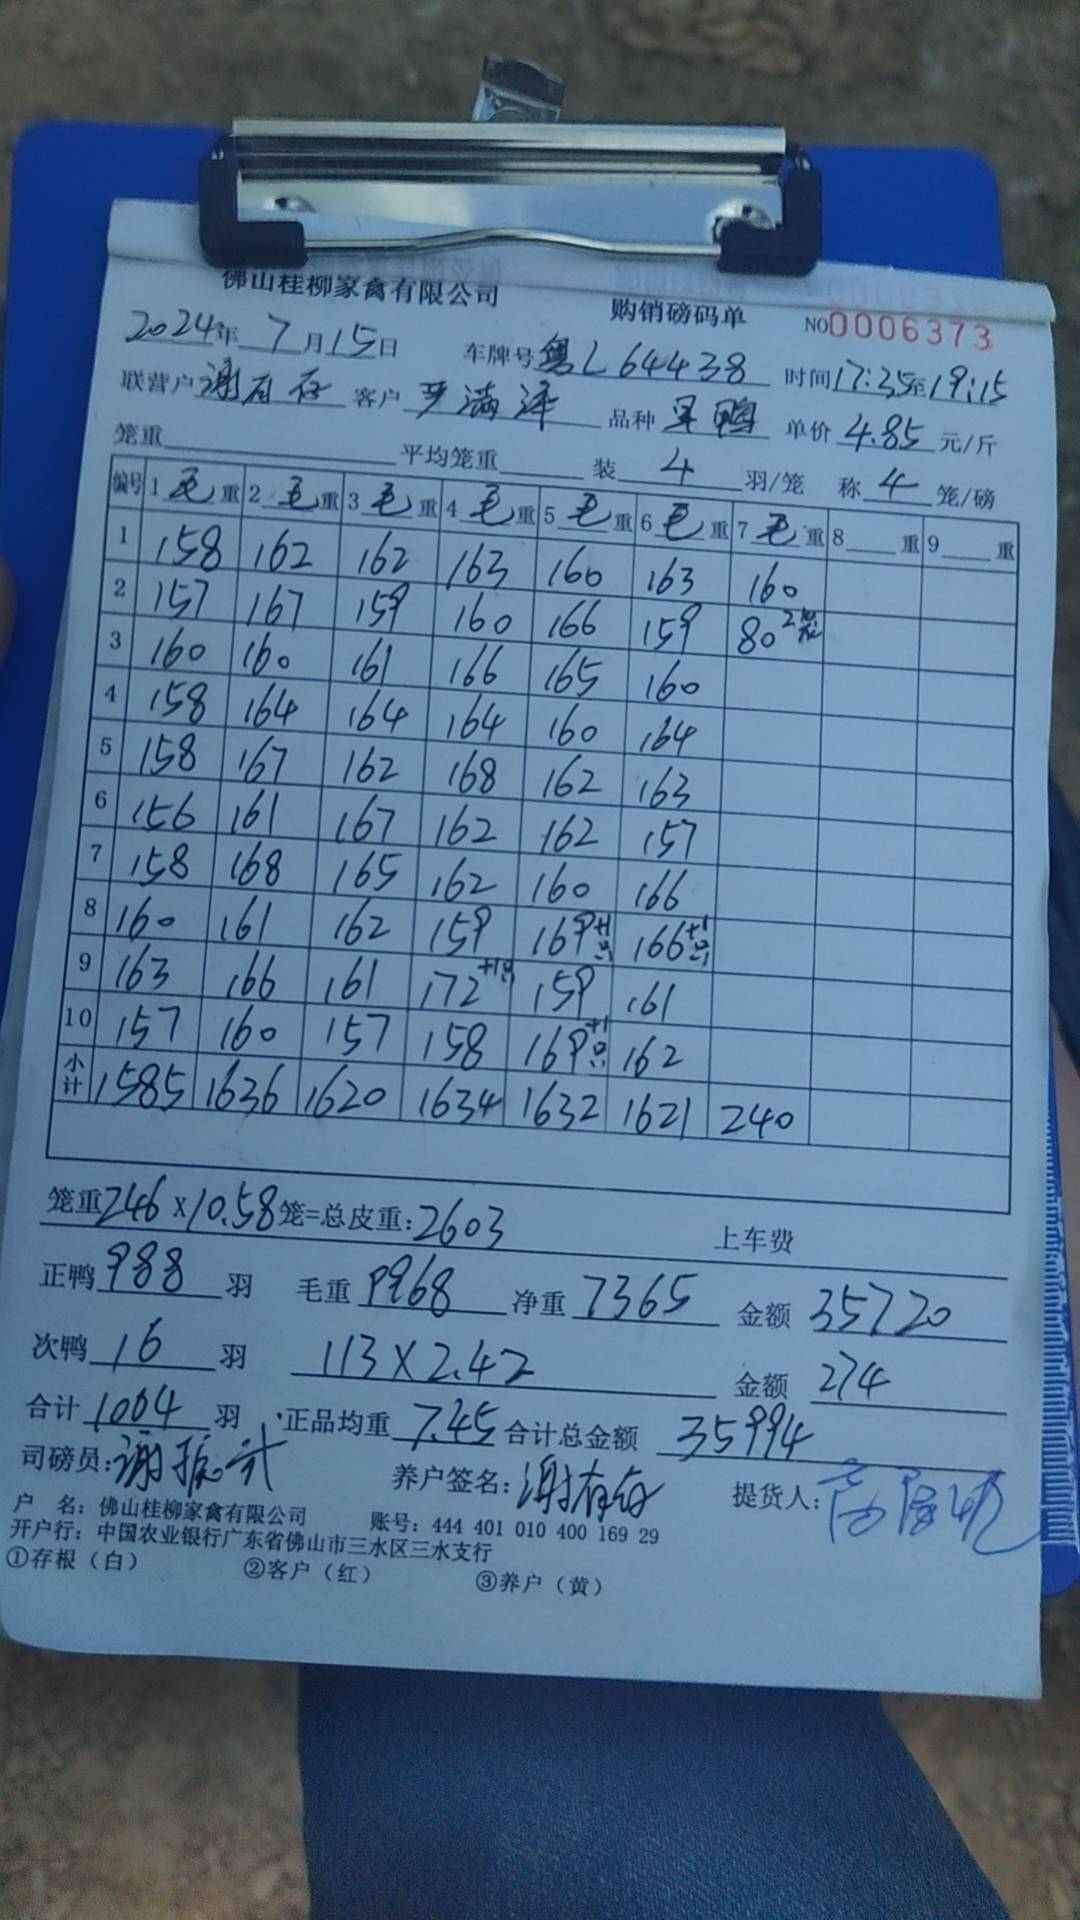 佛山桂柳家禽有限公司 购销磅码单 NO0006373
2024年7月15日 车牌号粤L64438 时间17:35至19:15
联营户谢有存 客户 满泽 品种 鸭 单价4.85元/斤
笼重 平均笼重 装4羽/笼 称4笼/磅
编号 1毛重 2毛重 3毛重 4毛重 5毛重 6毛重 7毛重 8重 9重
1 158 162 162 163 160 163 160
2 157 167 159 160 166 159 80 2笼
3 160 160 161 166 165 160
4 158 164 164 164 160 164
5 158 167 162 168 162 163
6 156 161 167 162 162 157
7 158 168 165 162 160 166
8 160 161 162 159 169+1只 166+1只
9 163 166 161 172+1只 159 161
10 157 160 157 158 169+1只 162
小计 1585 1636 1620 1634 1632 1621 240
笼重246×10.58笼=总皮重:2603 上车费
正鸭988羽 毛重9968 净重7365 金额35720
次鸭16羽 113×2.42 金额274
合计1004羽 正品均重7.45 合计总金额35994
司磅员:谢振 养户签名:谢有存 提货人:
户 名:佛山桂柳家禽有限公司 账号:444 401 010 400 169 29
开户行:中国农业银行广东省佛山市三水区三水支行
①存根(白) ②客户(红) ③养户(黄)